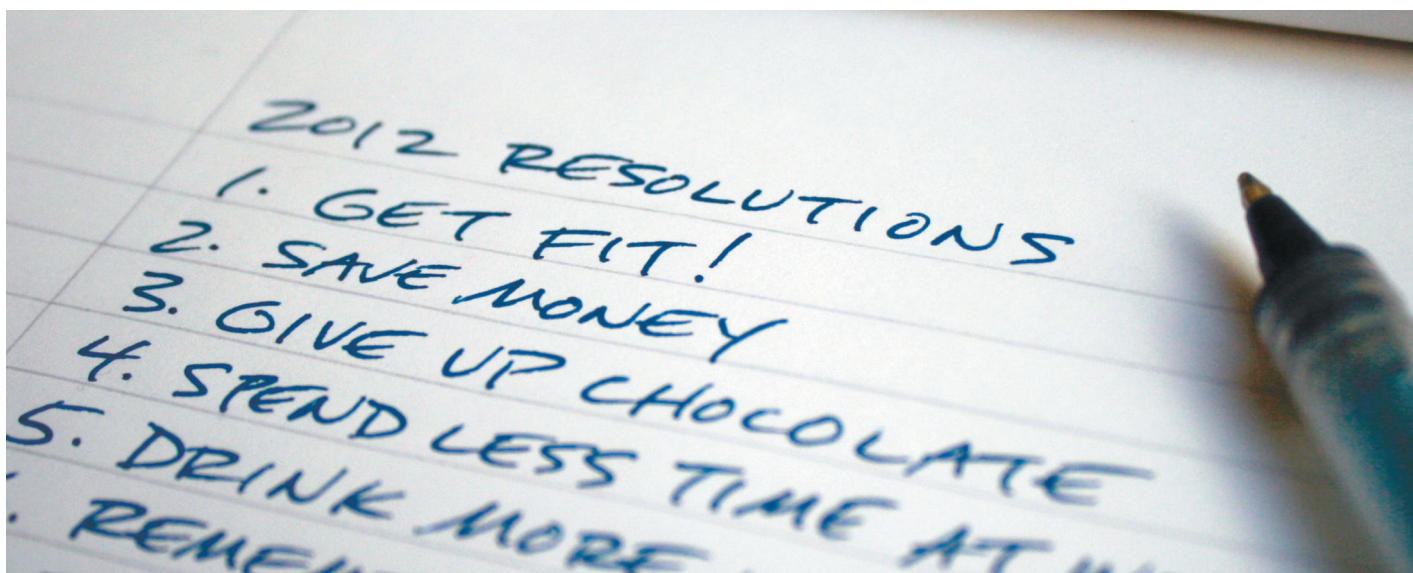 2012 RESOLUTIONS
1. GET FIT!
2. SAVE MONEY
3. GIVE UP CHOCOLATE
4. SPEND LESS TIME AT
5. DRINK MORE